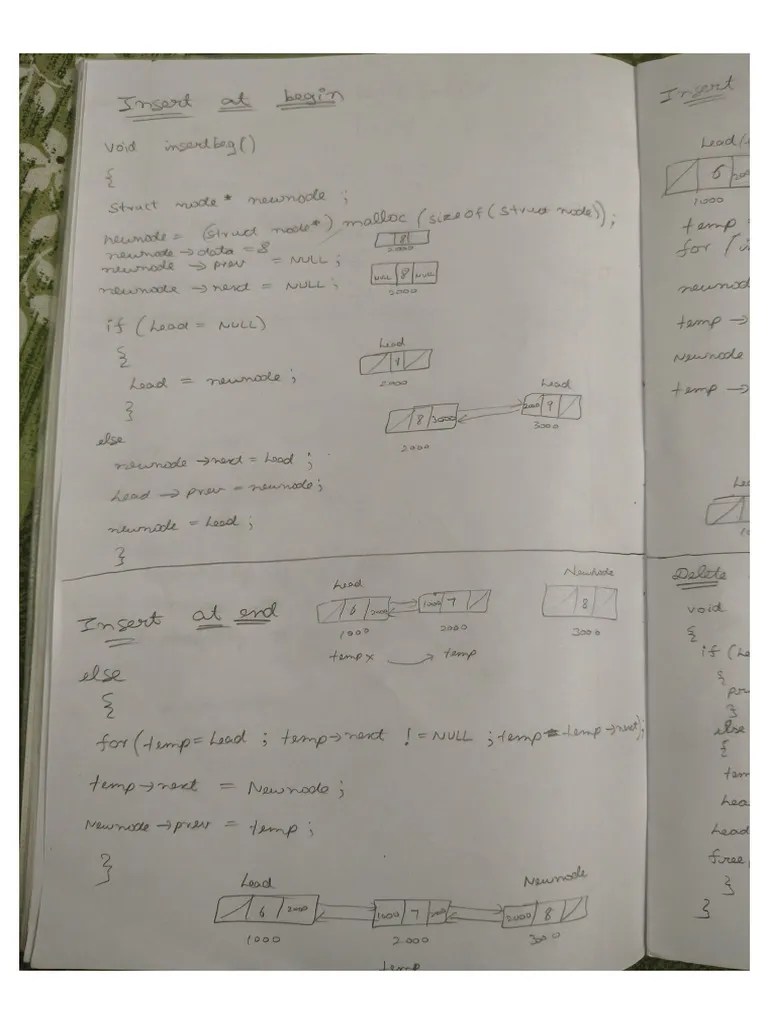 Insert at begin
void insertbeg()
{
struct node* newnode ;
newnode = (struct node*) malloc (sizeof(struct node));
newnode → data = 8
8
2000
newnode → prev = NULL ;
NULL 8 NULL
2000
newnode → next = NULL ;
if (Lead = NULL)
{
Lead
2000
Lead = newnode ;
}
Lead
8 3000
2000 9
2000
3000
else
newnode → next = Lead ;
Lead → prev = newnode ;
newnode = Lead ;
}
Insert at end
Lead
6 2000
1000 7
1000
2000
temp x
temp
Newnode
8
3000
else
{
for (temp = Lead ; temp → next != NULL ; temp = temp → next);
temp → next = Newnode ;
Newnode → prev = temp ;
}
Lead
Newnode
6 2000
1000 7
2000 8
1000
2000
3000
temp
Insert
Lead
6
1000
temp =
for
temp →
Newnode
temp →
Delete
void
{
if
{
}
else
{
Lead
}
}